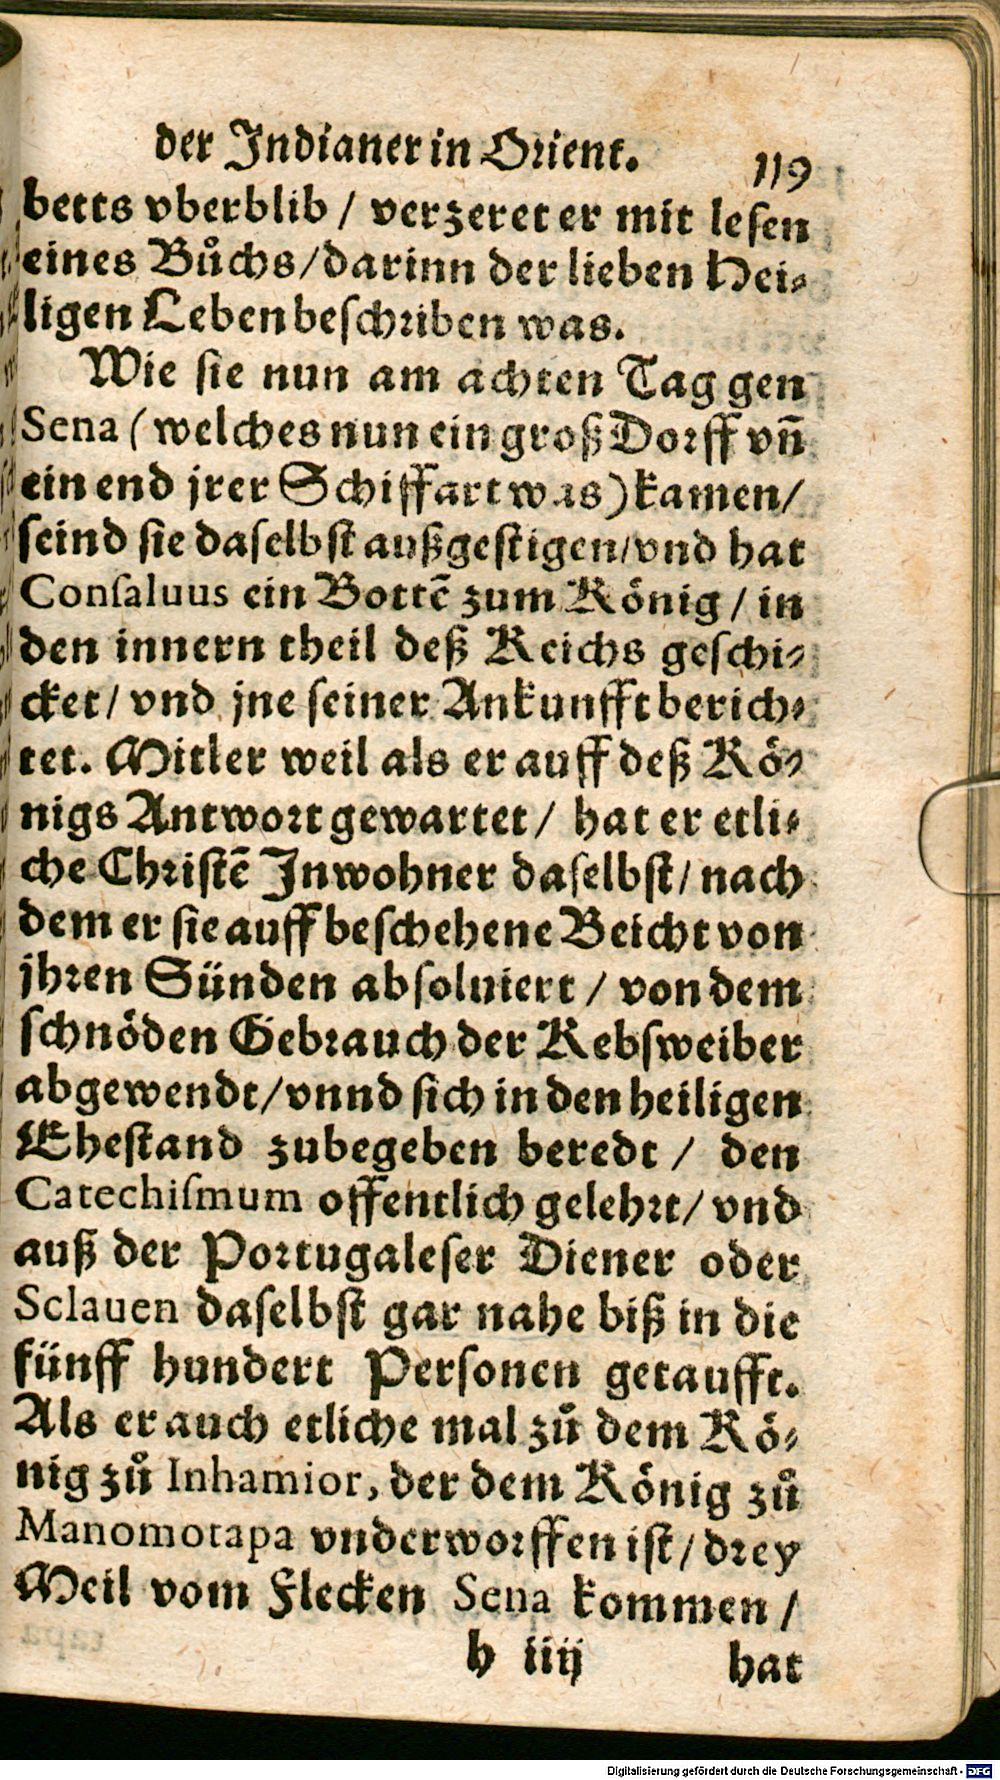 der Indianer in Orient. 119
betts vberblib / verzeret er mit lesen
eines Buͦchs/darinn der lieben Hei⸗
ligen Leben beschriben was.
Wie sie nun am achten Tag gen
Sena (welches nun ein groß Dorff vn̄
ein end jrer Schiffart was) kamen/
seind sie daselbst außgestigen/vnd hat
Consaluus ein Bottē zum König / in
den innern theil deß Reichs geschi⸗
cket/ vnd jne seiner Ankunfft berich⸗
tet. Mitler weil als er auff deß Kö⸗
nigs Antwort gewartet / hat er etli⸗
che Christē Inwohner daselbst/ nach
dem er sie auff beschehene Beicht von
jhren Sünden absoluiert / von dem
schnöden Gebrauch der Kebsweiber
abgewendt/vnnd sich in den heiligen
Ehestand zubegeben beredt / den
Catechismum offentlich gelehrt/ vnd
auß der Portugaleser Diener oder
Sclauen daselbst gar nahe biß in die
fünff hundert Personen getaufft.
Als er auch etliche mal zuͦ dem Kö⸗
nig zuͦ Inhamior, der dem König zuͦ
Manomotapa vnderworffen ist/ drey
Meil vom Flecken Sena kommen /
h iiij hat
Digitalisierung gefördert durch die Deutsche Forschungsgemeinschaft - DFG